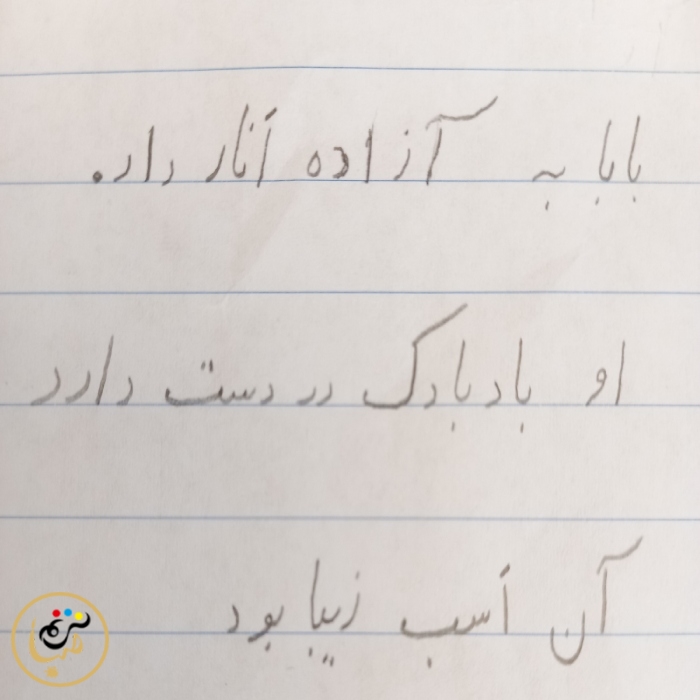 بابا به آزاده اَنار داد.
او بادبادک در دست دارد
آن اَسب زیبا بود